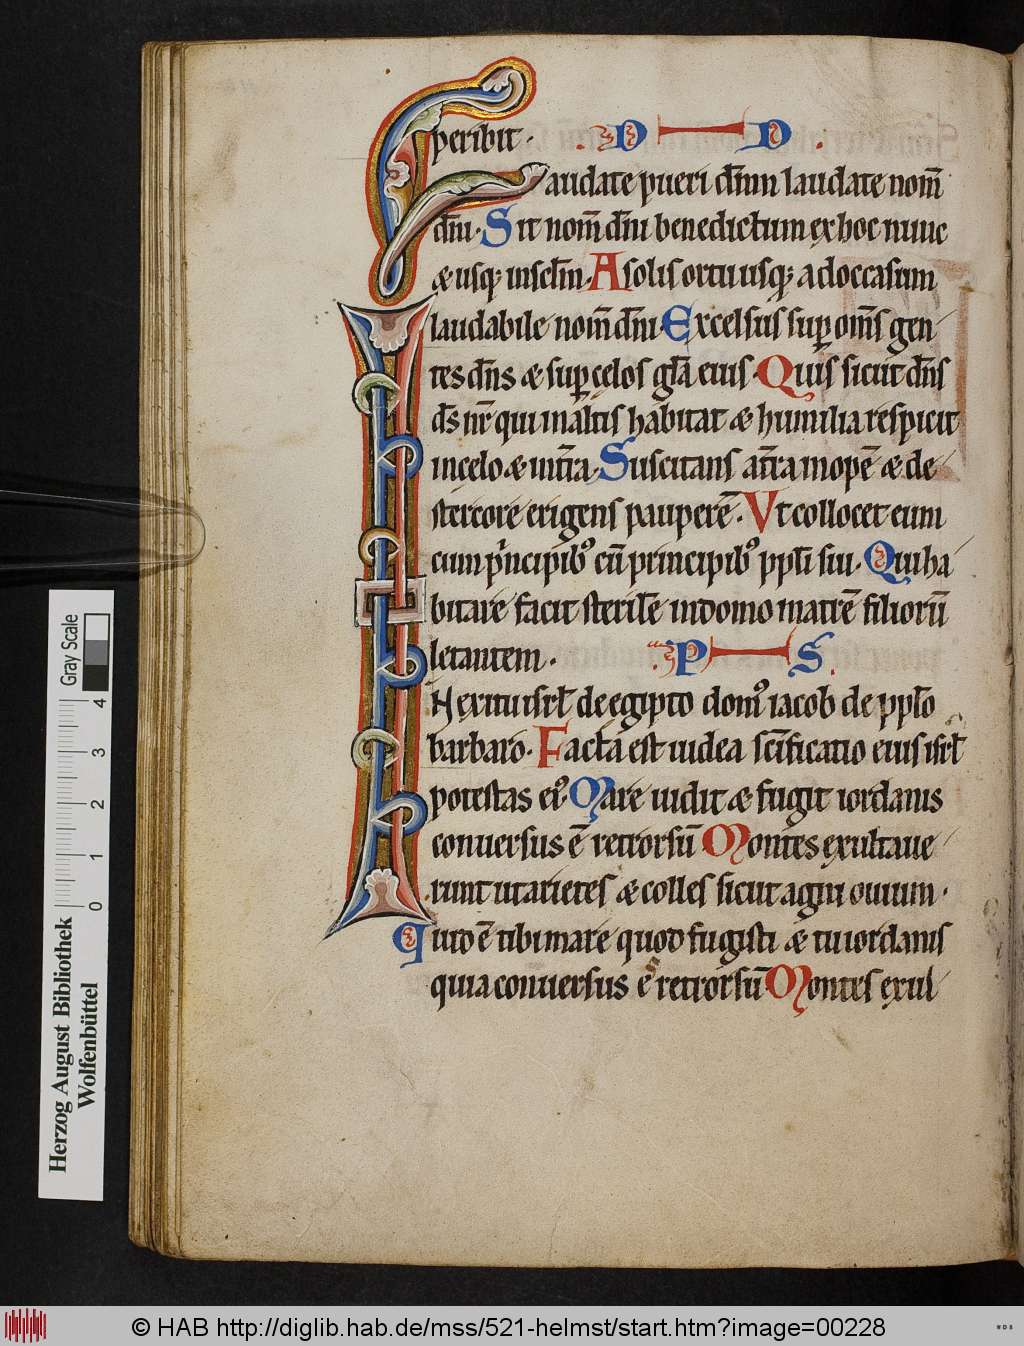 peribit. D D.
Laudate pueri dn̄m laudate nom̄
dn̄i. Sit nom̄ dn̄i benedictum ex hoc nunc
& usq; in sc̄lm. A solis ortu usq; ad occasum
laudabile nom̄ dn̄i. Excelsus sup̄ om̄s gen
tes dn̄s & sup̄ celos gl̄a eius. Quis sicut dn̄s
ds̄ nr̄ qui in altis habitat & humilia respicit
in celo & in tr̄a. Suscitans a tr̄a inopē & de
stercore erigens pauperē. Vt collocet eum
cum principibꝰ cū principibꝰ pp̄li sui. Qui ha
bitare facit sterilē in domo matrē filiorū
letantem. P S.
IN exitu isrl̄ de egipto domꝰ iacob de pp̄lo
barbaro. Facta est iudea sc̄ificatio eius isrl̄
potestas eiꝰ. Mare uidit & fugit iordanis
conuersus ē retrorsū Montes exultaue
runt ut arietes & colles sicut agni ouium.
Quid ē tibi mare quod fugisti & tu iordanis
quia conuersus ē retrorsū Montes exul
Herzog August Bibliothek
Wolfenbüttel
0 1 2 3 4
Gray Scale
© HAB http://diglib.hab.de/mss/521-helmst/start.htm?image=00228